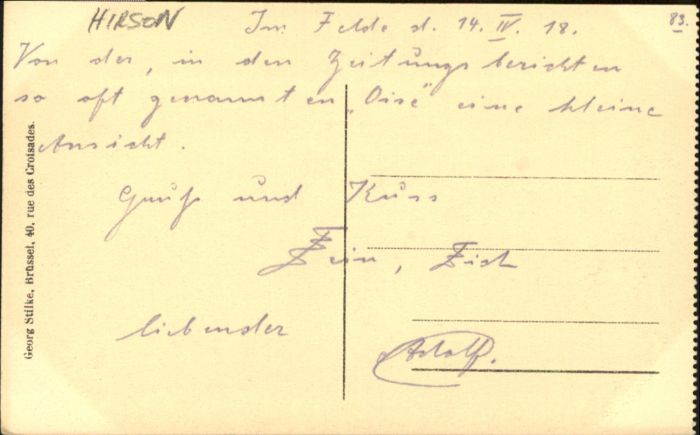 HIRSON
Im Felde d. 14. IV. 18.
83.
Von der, in den Zeitungsberichten
so oft genannten „Oise" eine kleine
Ansicht.
Gruß und Kuss
Dein, Dich
liebender
Adolf.
Georg Stilke, Brüssel, 40, rue des Croisades.